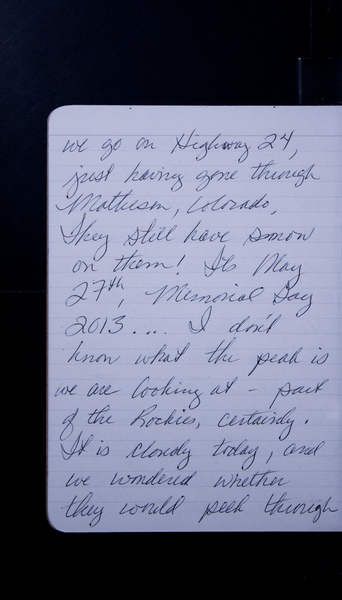 we go on Highway 24,
just having gone through
Matheson, Colorado,
They still have snow
on them! Its May
27th, Memorial Day
2013.... I don't
know what the peak is
we are looking at - part
of the Rockies, certainly.
It is cloudy today, and
we wondered whether
they would peek through